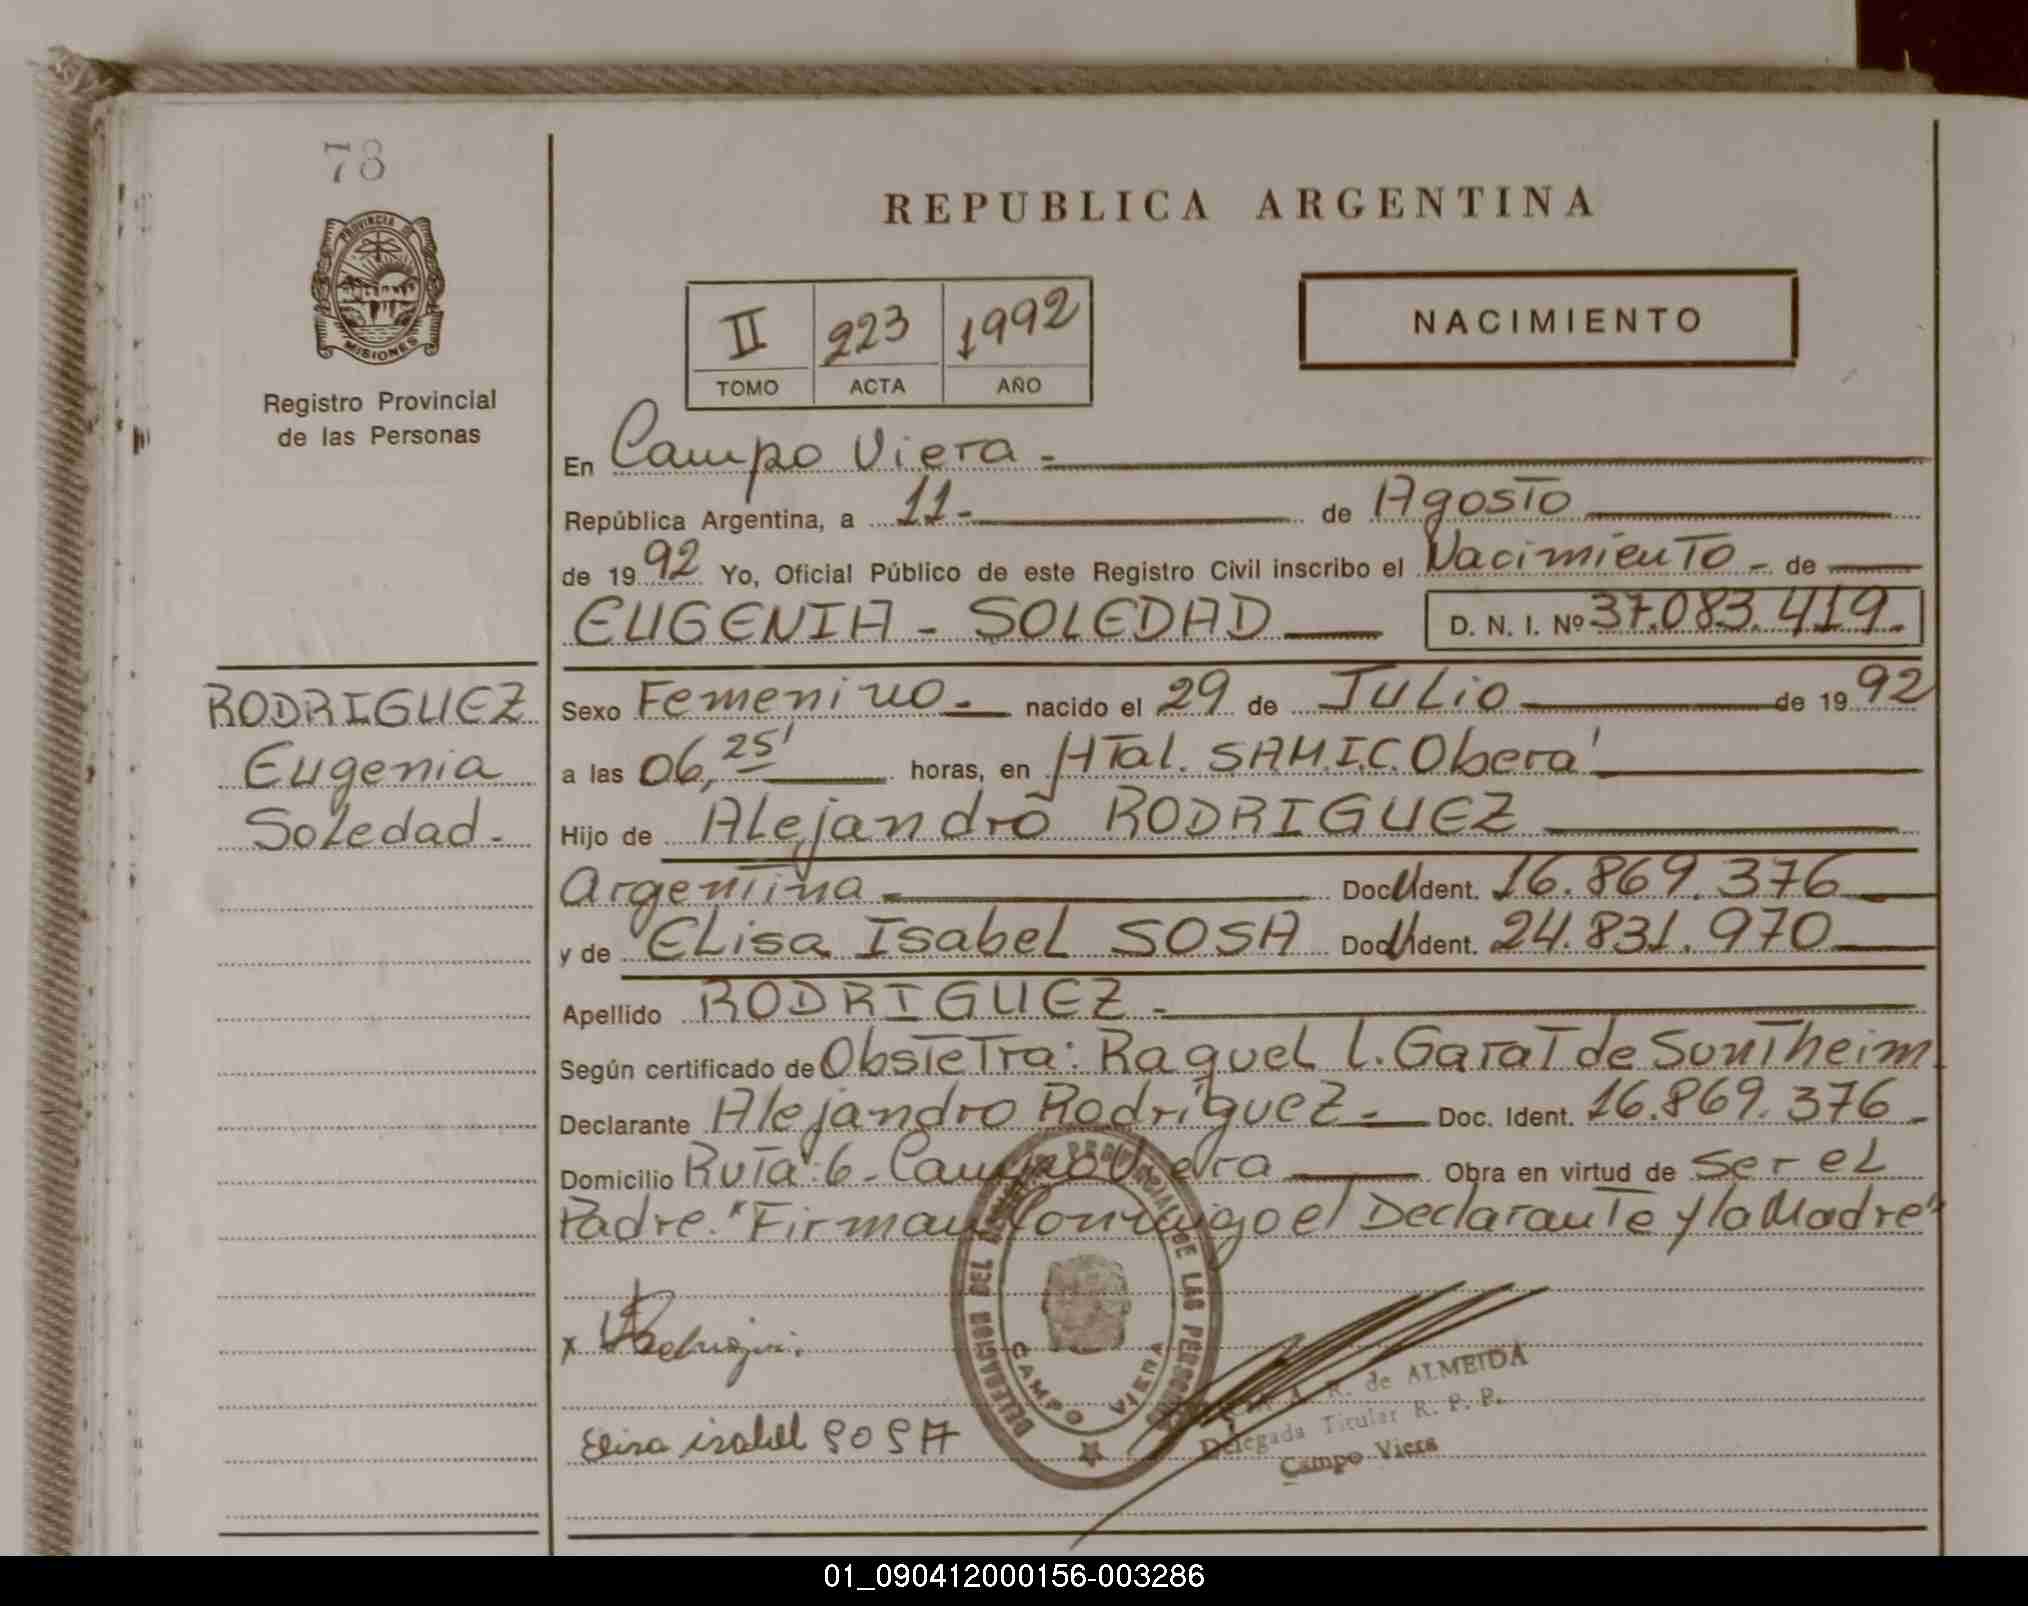 78
PROVINCIA DE
MISIONES
Registro Provincial
de las Personas
REPUBLICA ARGENTINA
II 223 1992
TOMO ACTA AÑO
NACIMIENTO
En Campo Viera -
República Argentina, a 11- de Agosto
de 1992 Yo, Oficial Público de este Registro Civil inscribo el Nacimiento - de
EUGENIA - SOLEDAD D. N. I. Nº 37.083.419.
RODRIGUEZ
Eugenia
Soledad-
Sexo Femenino- nacido el 29 de Julio de 1992
a las 06,25' horas, en HTal. SAM.I.C. Obera'
Hijo de Alejandro RODRIGUEZ
Argentina- Doc. U Ident. 16.869.376
y de Elisa Isabel SOSA Doc. U Ident. 24.831.970
Apellido RODRIGUEZ -
Según certificado de Obstetra: Raquel L. Garat de Suntheim
Declarante Alejandro Rodriguez- Doc. Ident. 16.869.376-
Domicilio Ruta 6- Campo Viera Obra en virtud de ser el
Padre. "Firman Conmigo el Declarante y la Madre"
x Rodriguez.
Elisa isabel SOSA
DELEGACION DEL PROVINCIAL DE LAS PERSONAS
CAMPO VIERA
A. R. de ALMEIDA
Delegada Titular R. P. P.
Campo Viera
01_090412000156-003286